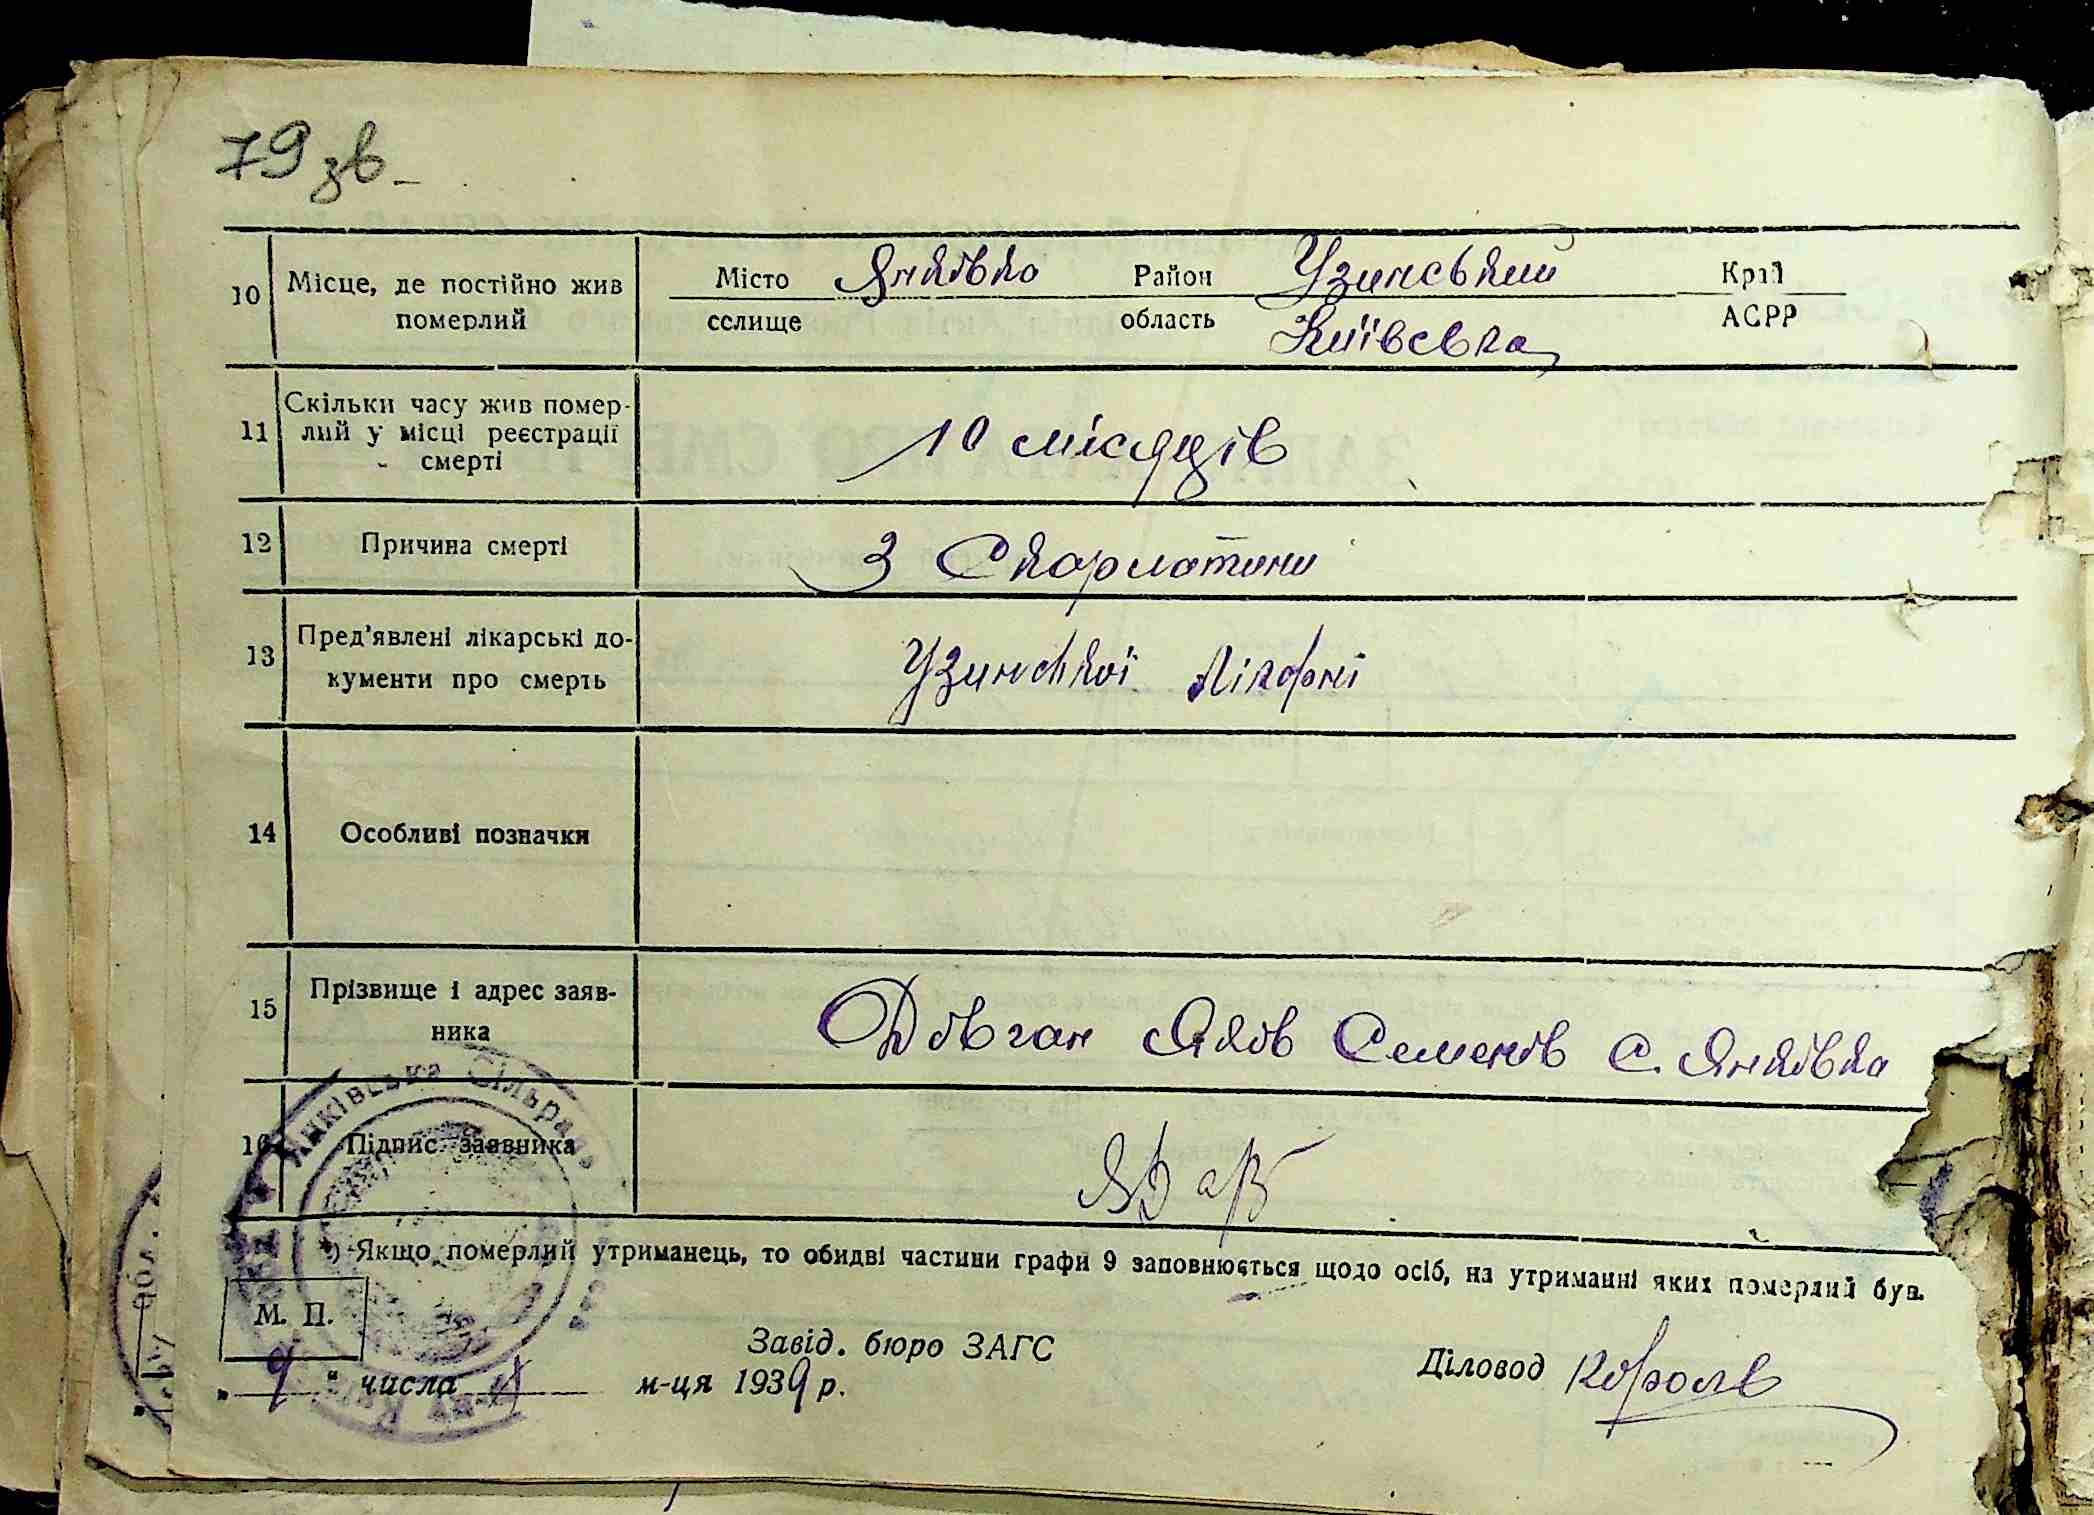 79 зв
10 Місце, де постійно жив померлий
Місто Янківка Район Узинський Край
селище область Київська АСРР
11 Скільки часу жив помер-
лий у місці реєстрації
смерті
10 місяців
12 Причина смерті З Скарлатини
13 Пред'явлені лікарські до-
кументи про смерть
Узинської Лікарні
14 Особливі позначки
15 Прізвище і адрес заяв-
ника
Довган Яков Семенів С. Янківка
16 Підпис заявника
Янківська Сільрада
*) Якщо померлий утриманець, то обидві частини графи 9 заповнюється щодо осіб, на утриманні яких померлий був.
М. П.
Завід. бюро ЗАГС
Діловод Король
„ 9 " числа м-ця 1939 р.